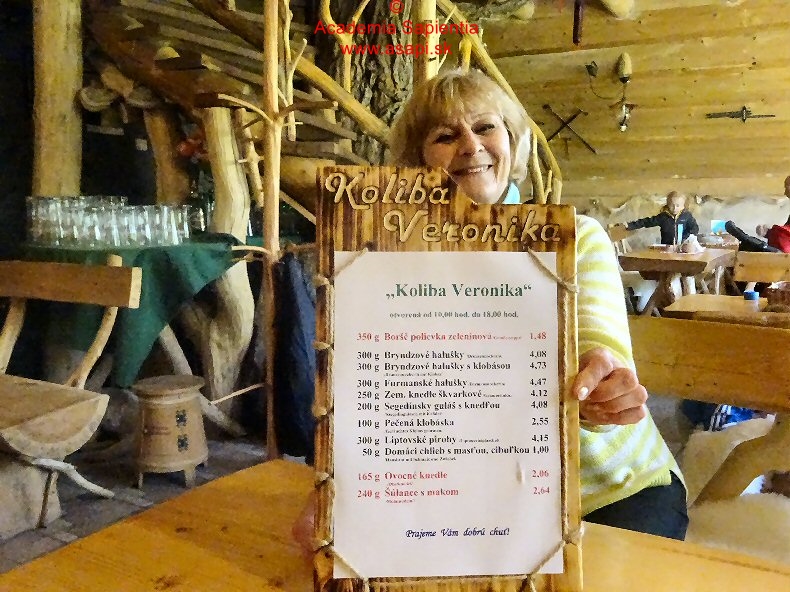 ©
Academia Sapientia
www.asapi.sk
Koliba
Veronika
„Koliba Veronika“
otvorená od 10,00 hod. do 18,00 hod.
350 g Boršč polievka zeleninová 1,48
300 g Bryndzové halušky 4,08
300 g Bryndzové halušky s klobásou 4,73
300 g Furmanské halušky 4,47
250 g Zem. knedle škvarkové 4,12
200 g Segedínsky guláš s knedľou 4,08
100 g Pečená klobáska 2,55
300 g Liptovské pirohy 4,15
50 g Domáci chlieb s masťou, cibuľkou 1,00
165 g Ovocné knedle 2,06
240 g Šúlance s makom 2,64
Prajeme Vám dobrú chuť!